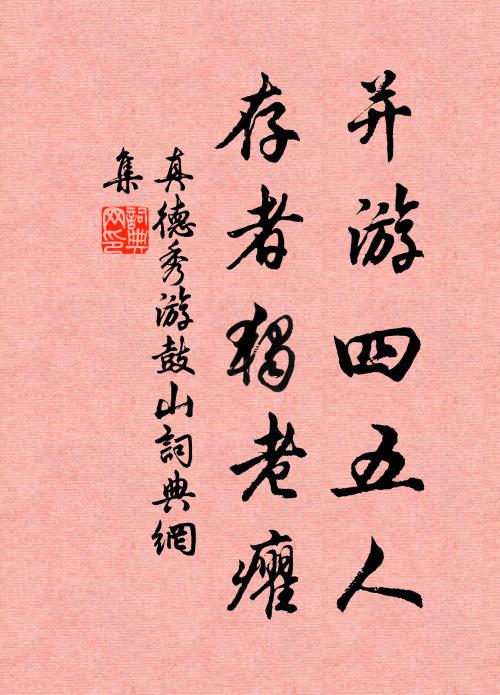 并游四五人
存者獨老癯
真德秀游鼓山詞典網
集
詞典网印